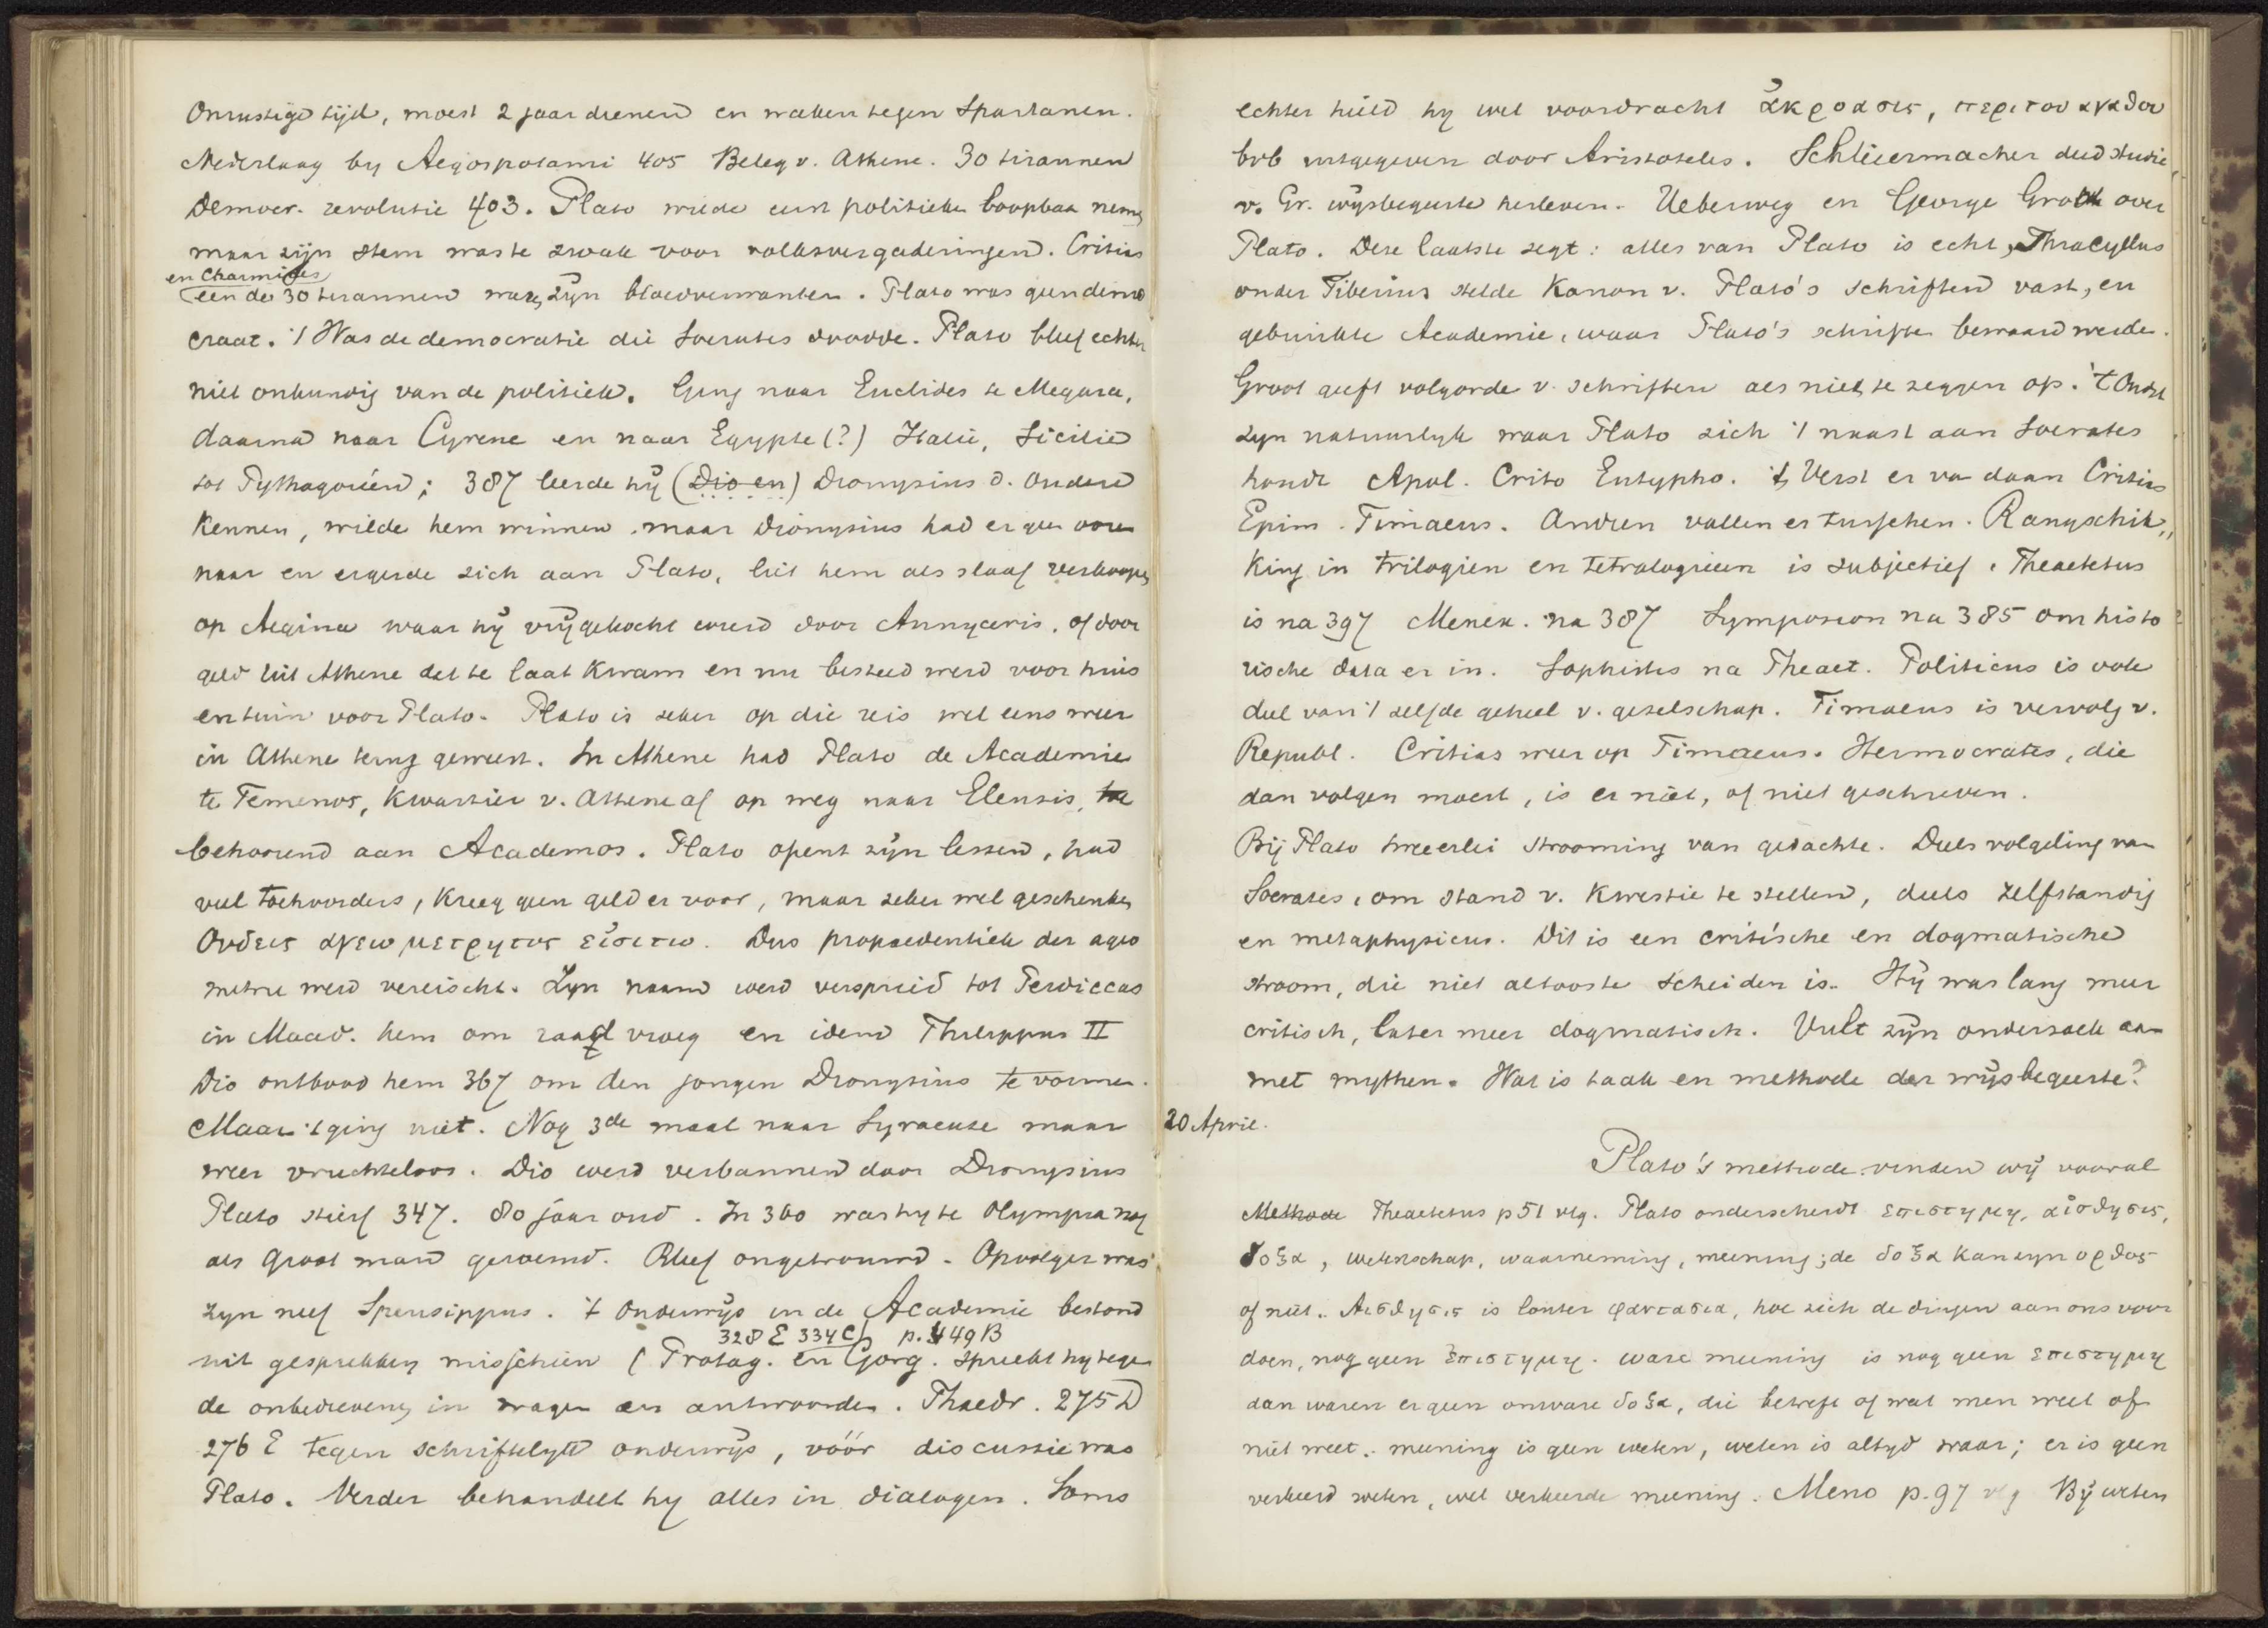 Onrustige tijd, moest 2 jaar dienen en waken tegen Spartanen.
Nederlaag by Aegospotami 405 Beleg v. Athene. 30 tirannen
Democr. revolutie 403. Plato wilde eerst politieke loopbaan nemen,
maar zijn stem was te zwak voor volksvergaderingen. Critias
en Charmides
een der 30 tirannen waren zijn bloedverwanten. Plato was geen demo
craat. 't Was de democratie die Socrates doodde. Plato bleef echter
niet onkundig van de politiek. Ging naar Euclides te Megara,
daarna naar Cyrene en naar Egypte (?) Italië, Sicilië
tot Pythagoriën; 387 leerde hij (Dio en) Dionysius d. Oudere
kennen, wilde hem winnen. maar Dionysius had er geen ooren
naar en ergerde zich aan Plato, liet hem als slaaf verkoopen,
op Aegina waar hij vrijgekocht werd door Annyceris. of door
geld uit Athene dat te laat kwam en nu besteed werd voor huis
en tuin voor Plato. Plato is zeker op die reis wel eens weer
in Athene terug geweest. In Athene had Plato de Academie
te Temenos, kwartier v. Athene af op weg naar Eleusis, toe
behoorend aan Academos. Plato opent zijn lessen, had
veel toehoorders, kreeg geen geld er voor, maar zeker wel geschenken
Ουδεις αγεωμετρητος εἰσιτω. Dus propaedeutiek der ageo
metrie werd vereischt. Zyn naam werd verspreid tot Perdiccas
in Maced. hem om raad vroeg en idem Philippus II
Dio ontbood hem 367 om den jongen Dionysius te vormen.
Maar 't ging niet. Nog 3de maal naar Syracuse maar
weer vruchteloos. Dio werd verbannen door Dionysius
Plato stierf 347. 80 jaar oud. In 360 was hy te Olympia nog
als groot man geroemd. Bleef ongetrouwd. Opvolger was
zyn neef Speusippus. 't Onderwijs in de Academie bestond
328 E 334 C p. 449 B
uit gesprekken misschien (Protag. en Gorg. spreekt hy tegen
de onbedrevenen in vragen en antwoorden. Phaedr. 275 D
276 E tegen schriftelyk onderwijs, vóór discussie was
Plato. Verder behandelt hy alles in dialogen. Soms
echter hield hy wel voordracht ἀκροασις, περι του αγαθου
bvb uitgegeven door Aristoteles. Schleiermacher deed studie
v. Gr. wijsbegeerte herleven. Ueberweg en George Grote over
Plato. Deze laatste zegt: alles van Plato is echt, Thracyllus
onder Tiberius stelde Kanon v. Plato's schriften vast, en
gebruikte Academie, waar Plato's schriften bewaard werden.
Groot geeft volgorde v. schriften als niet te zeggen op. 't Oudst
zyn natuurlyk waar Plato zich 't naast aan Socrates
houdt Apol. Crito Eutypho. 't Verst er van daan Critias
Epim. Timaeus. Andren vallen er tusschen. Rangschik„
King in trilogien en tetralogieen is subjectief. Theaetetus
is na 397 Menex. na 387 Symposion na 385 om histo
rische data er in. Sophistes na Theaet. Politicus is ook
deel van 't zelfde geheel v. gezelschap. Timaeus is vervolg v.
Republ. Critias weer op Timaeus. Hermocrates, die
dan volgen moest, is er niet, of niet geschreven.
Bij Plato tweeerlei strooming van gedachte. Deels volgeling van
Socrates, om stand v. kwestie te stellen, deels zelfstandig
en metaphysicus. Dit is een critische en dogmatische
stroom, die niet altoos te scheiden is. Hij was lang meer
critisch, later meer dogmatisch. Vult zijn onderzoek aan
met mythen. Wat is taak en methode der wijsbegeerte?
20 April.
Plato's methode vinden wij vooral
Methode Theaetetus p 51 vlg. Plato onderscheidt επιστημη, αἰσθησις,
δοξα, wetenschap, waarneming, meening; de δοξα kan zyn ορθος
of niet. Αισθησις is louter φαντασια, hoe zich de dingen aan ons voor
doen, nog geen ἐπιστημη. ware meening is nog geen επιστημη
dan waren er geen onware δοξα, die betreft of wat men weet of
niet weet. meening is geen weten, weten is altyd waar; er is geen
verkeerd weten, wel verkeerde meening. Meno p. 97 vlg Bij weten